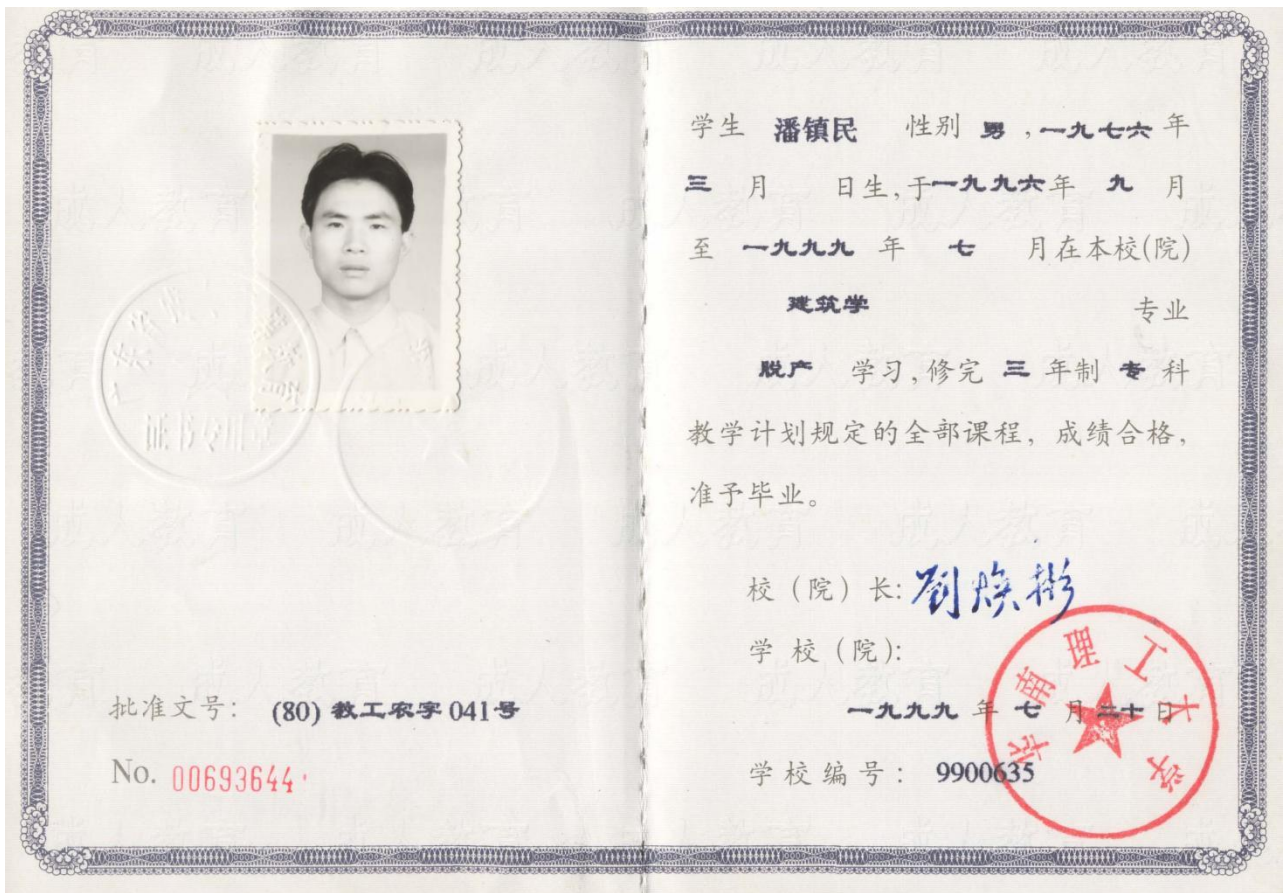 成人教育
证书专用章
批准文号: (80) 教工农字 041号
No. 00693644
学生 潘镇民 性别 男 ,一九七六 年
三 月 日生,于一九九六年 九 月
至 一九九九 年 七 月在本校(院)
建筑学 专业
脱产 学习,修完 三 年制 专 科
教学计划规定的全部课程, 成绩合格,
准予毕业。
校 (院) 长: 刘焕彬
学 校 (院):
华南理工大学
一九九九 年 七 月二十日
学 校 编 号 : 9900635